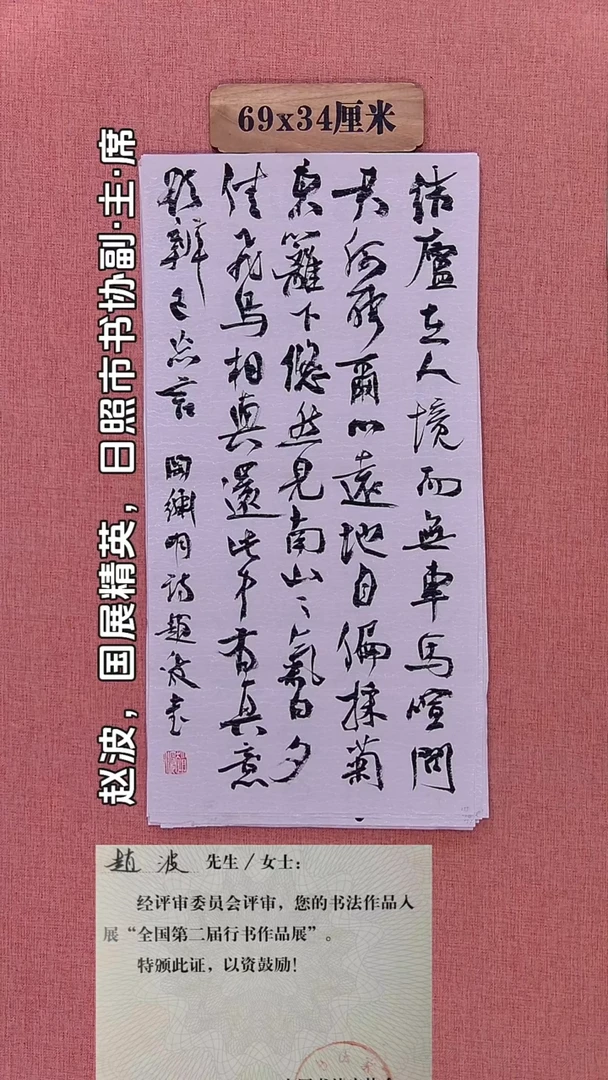 69x34厘米
結廬在人境而無車馬喧問
君何能爾心遠地自偏採菊
東籬下悠然見南山〻氣日夕
佳飛鳥相與還此中有真意
欲辨已忘言 陶淵明詩趙波書
赵波，国展精英，日照市书协副·主·席
趙波 先生/女士：
经评审委员会评审，您的书法作品入
展“全国第二届行书作品展”。
特颁此证，以资鼓励！